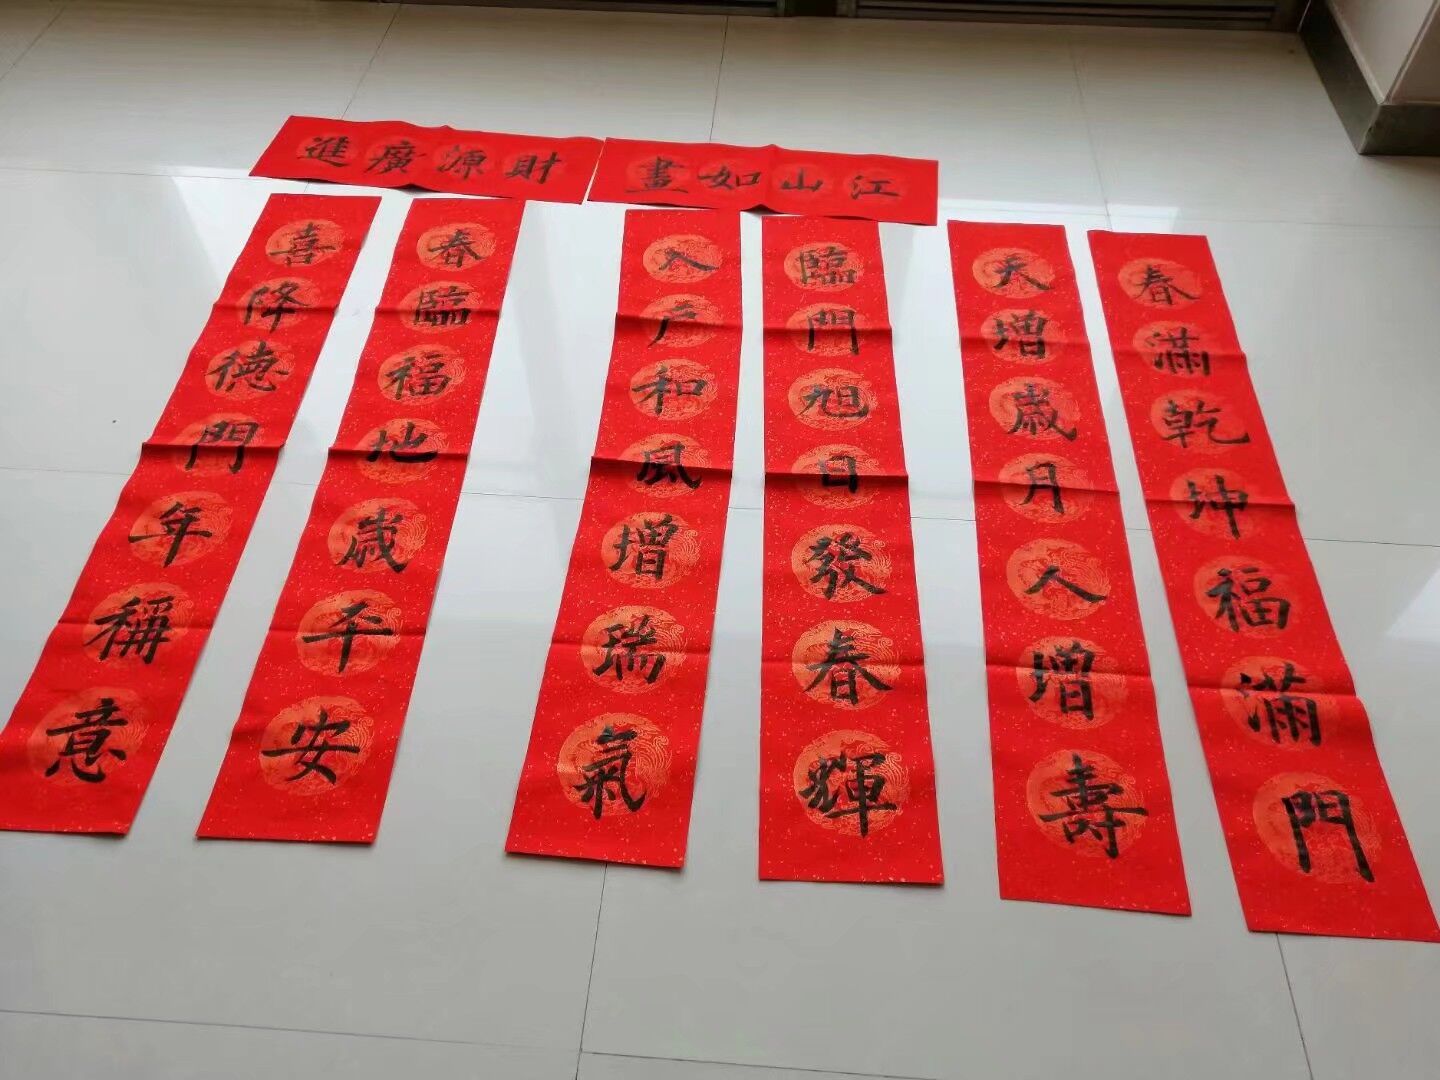 財源廣進
江山如畫
春臨福地歲平安
喜降德門年稱意
臨門旭日發春輝
入户和風增瑞氣
春滿乾坤福滿門
天增歲月人增壽